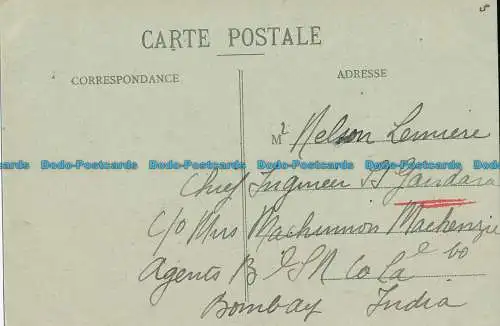 5
CARTE POSTALE
CORRESPONDANCE
ADRESSE
Mr Nelson Lemiere
Chief Engineer SS Gandara
c/o Mrs Mackinnon Mackenzie
Agents B & S N Co Ld
Bombay India
Dodo-Postcards Dodo-Postcards Dodo-Postcards Dodo-Postcards Dodo-Postcards